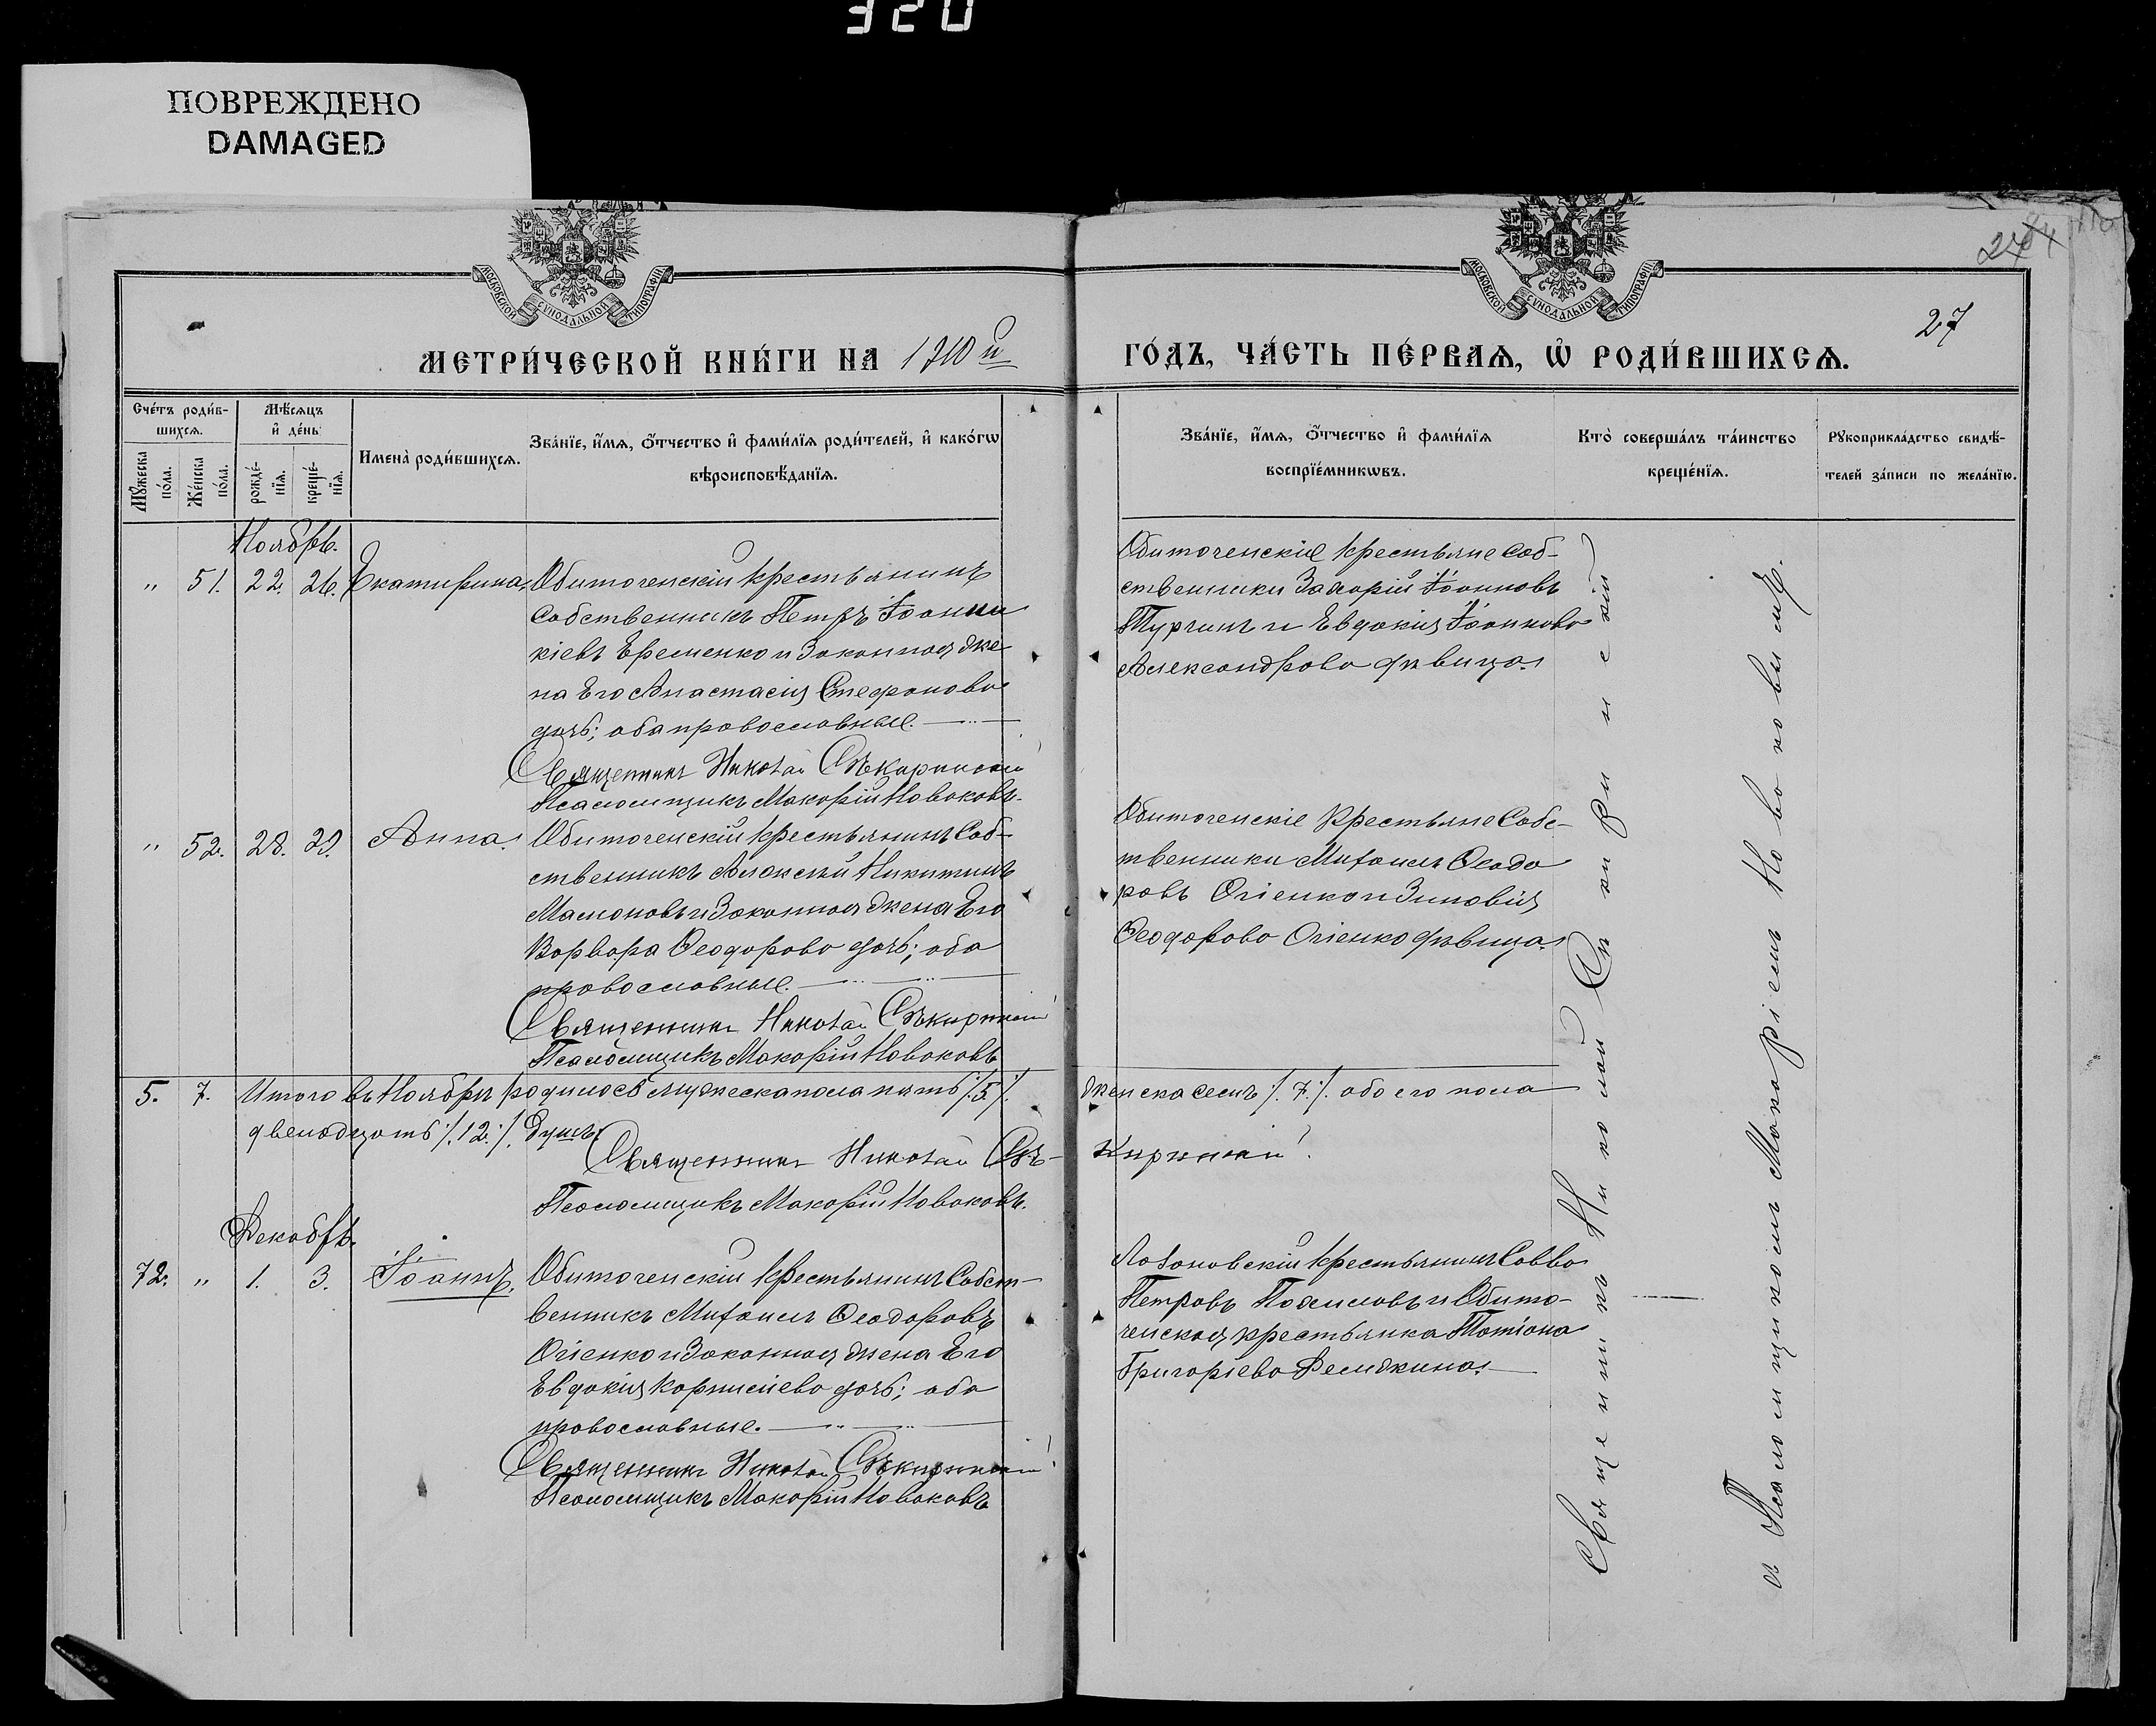 320
ПОВРЕЖДЕНО
DAMAGED
МОСКОВСКОЙ СУНОДАЛЬНОЙ ТИПОГРАФІИ
МОСКОВСКОЙ СУНОДАЛЬНОЙ ТИПОГРАФІИ
27
МЕТРИ́ЧЕСКОЙ КНИ́ГИ НА 1910 й
ГО́ДЪ, ЧА́СТЬ ПЕ́РВАѦ, Ѡ РОДИ́ВШИХСѦ.
Сче́тъ роди́в-
шихсѧ.
Мꙋ́жеска по́ла.
Же́нска по́ла.
Мѣ́сѧцъ
и҆ де́нь
рожде́-нїѧ.
креще́-нїѧ.
Имена̀ роди́вшихсѧ.
Зва́нїе, и҆́мѧ, ѻ҆́тчество и҆ фами́лїѧ роди́телей, и҆ како́гѡ
вѣроисповѣ́данїѧ.
Зва́нїе, и҆́мѧ, ѻ҆́тчество и҆ фами́лїѧ
воспрїе́мникѡвъ.
Кто̀ соверша́лъ та́инство
креще́нїѧ.
Рꙋкоприкла́дство свидѣ́-
телей за́писи по жела́нїю.
Ноябрь.
" 51. 22. 26. Екатерина. Обиточенскій крестьянинъ
собственникъ Петръ Іоанни
кіевъ Еременко и Законная же
на Его Анастасія Стефанова
дочь; оба православные.
Священникъ Николай Сѣкиринскій
Псаломщикъ Макарій Новаковъ.
Обиточенскіе крестьяне соб-
ственники Захарій Іоанновъ
Турчинъ и Евдокія Іоаннова
Александрова дѣвица.
" 52. 28. 29. Анна. Обиточенскій крестьянинъ Соб-
ственникъ Алексѣй Никитинъ
Мамоновъ и Законная жена Его
Варвара Ѳеодорова дочь; оба
православные.
Священникъ Николай Сѣкиринскій
Псаломщикъ Макарій Новаковъ
Обиточенскіе Крестьяне Собс-
твенники Михаилъ Ѳеодо
ровъ Огіенко и Зиновія
Ѳеодорова Огіенко дѣвица.
5. 7. Итого въ Ноябрѣ родилось мужеска пола пять /.5/. женска семь /.7./. обоего пола
двенадцать /.12./. душъ.
Священникъ Николай Сѣ-киринскій
Псаломщикъ Макарій Новаковъ.
Декабрь.
72. " 1. 3. Іоаннъ. Обиточенскій Крестьянинъ Собст-
венникъ Михаилъ Ѳеодоровъ
Огіенко и Законная жена Его
Евдокія Корнилieва дочь; оба
православные.
Священникъ Николай Сѣкиринскій
Псаломщикъ Макарій Новаковъ
крестьянинъ Савва
Петровъ и Обито-
ченская крестьянка Татіана
Григоріева Демяхина.
Священникъ Николай Сѣкиринскій
и Псаломщикомъ Макаріемъ Новаковымъ.